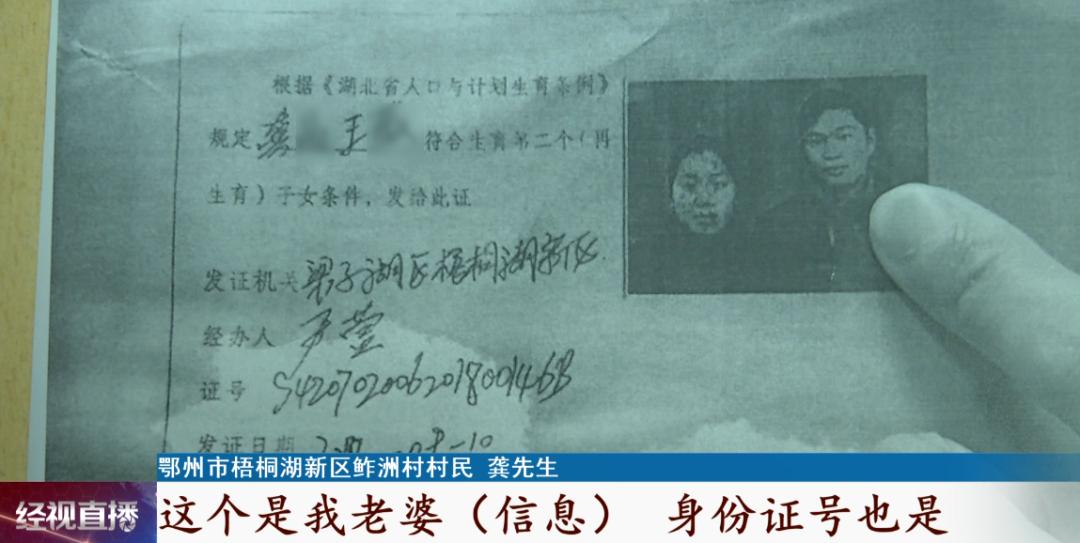 根据《湖北省人口与计划生育条例》
规定 龚 王 符合生育第二个（再
生育）子女条件，发给此证
发证机关 梁子湖区梧桐湖新区
经办人
证号 S420702006201800146B
发证日期
鄂州市梧桐湖新区鲊洲村村民 龚先生
经视直播
这个是我老婆（信息） 身份证号也是